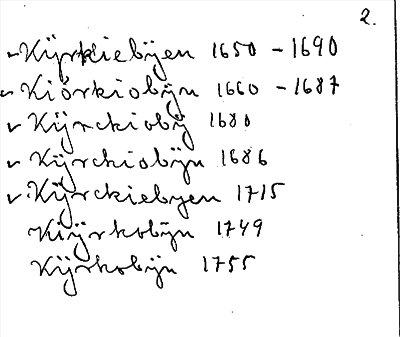 2.
✓ Kÿrkiebÿen 1650 - 1690
✓ Kiörkiobÿn 1660 - 1687
✓ Kÿrckiobÿ 1680
✓ Kÿrckiobÿn 1686
✓ Kÿrckiebyen 1715
Kiÿrkobÿn 1749
Kÿrkobÿn 1755